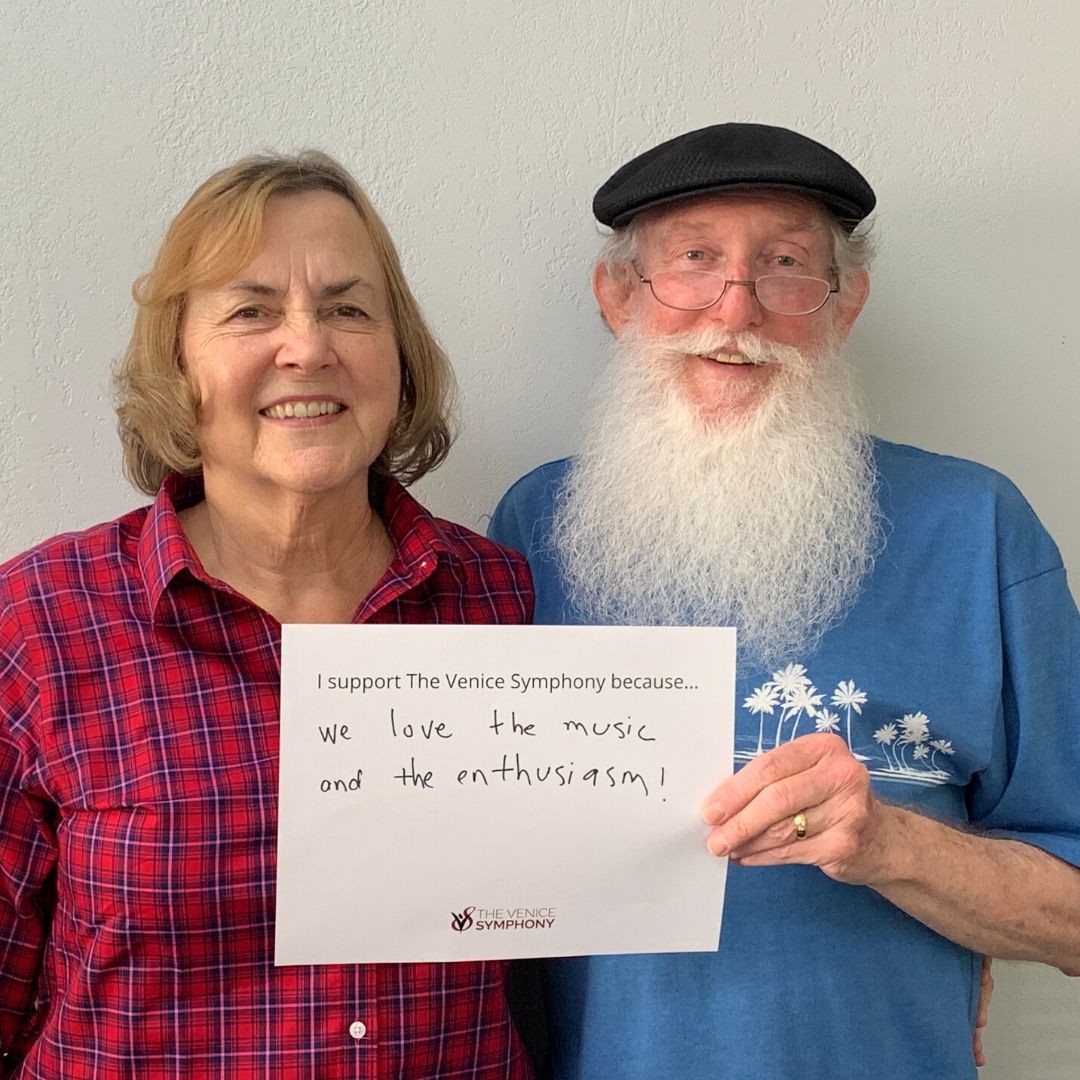 I support The Venice Symphony because...
we love the music
and the enthusiasm!
THE VENICE
SYMPHONY